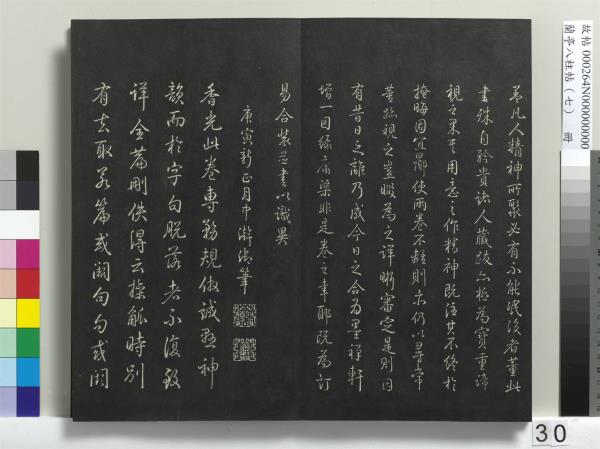 蓋凡人精神所聚必有不能泯沒者董此
書殊自矜貴諸人藏跋亦極為寶重諦
視之果其用意之作精神既注其不終於
掩晦固宜鄙使兩卷不類則未仍以尋常
董蹟視之豈暇為之詳晰審定是則因
有昔日之離乃成今日之合為墨禪軒
增一因緣屬渠非是卷之幸耶既為訂
易合裝並書以識異
庚寅新正月中澣御筆
香光此卷專務規倣誠懸神
韻而於字句脫落者不復致
詳全篇刪佚得云操觚時別
有去取若篇或闕句句或闕
故帖 000264N000000000
蘭亭八柱帖(七) 冊
30